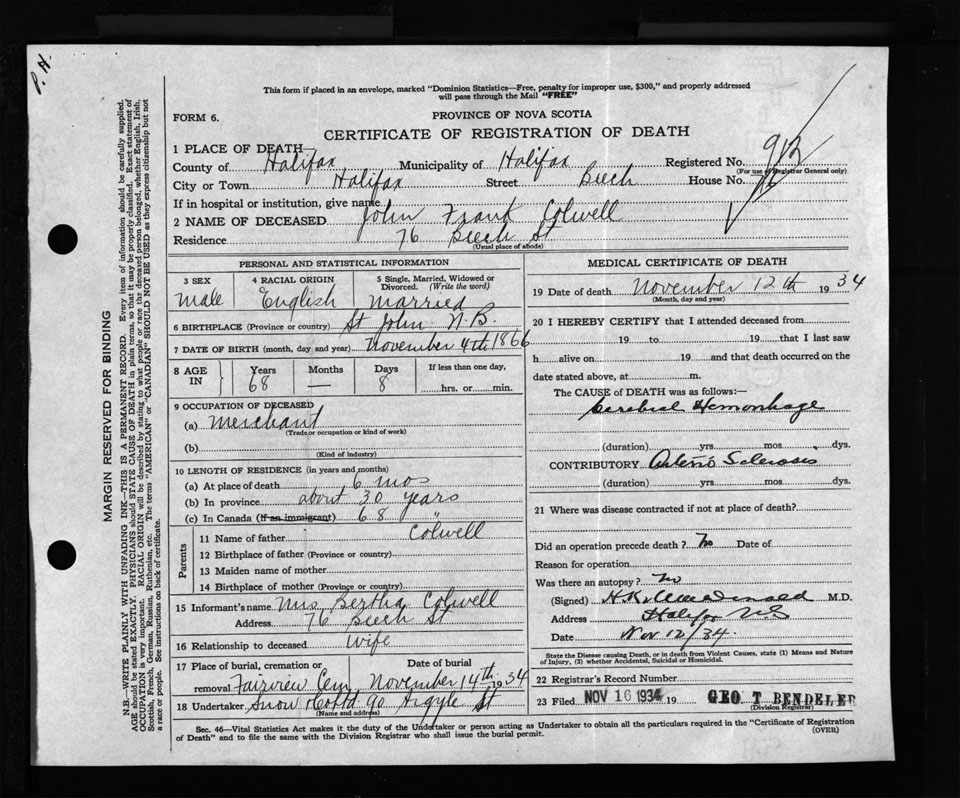 P. N.
This form if placed in an envelope, marked "Dominion Statistics—Free, penalty for improper use, $300," and properly addressed
will pass through the Mail "FREE"
FORM 6.
PROVINCE OF NOVA SCOTIA
CERTIFICATE OF REGISTRATION OF DEATH
1 PLACE OF DEATH
County of Halifax Municipality of Halifax Registered No. 912
(For use of Registrar General only)
City or Town Halifax Street Beech House No. 76
If in hospital or institution, give name
2 NAME OF DECEASED John Frank Colwell
Residence 76 Beech St
(Usual place of abode)
PERSONAL AND STATISTICAL INFORMATION
3 SEX 4 RACIAL ORIGIN 5 Single, Married, Widowed or Divorced. (Write the word)
male English married
6 BIRTHPLACE (Province or country) St John N.B.
7 DATE OF BIRTH (month, day and year) November 4th 1866
8 AGE IN Years Months Days If less than one day,
68 — 8 hrs. or min.
9 OCCUPATION OF DECEASED
(a) Merchant
(Trade or occupation or kind of work)
(b)
(Kind of industry)
10 LENGTH OF RESIDENCE (in years and months)
(a) At place of death 6 mos
(b) In province about 30 years
(c) In Canada (If an immigrant) 68 "
Parents
11 Name of father Colwell
12 Birthplace of father (Province or country)
13 Maiden name of mother
14 Birthplace of mother (Province or country)
15 Informant's name Mrs Bertha Colwell
Address 76 Beech St
16 Relationship to deceased Wife
17 Place of burial, cremation or removal Date of burial
Fairview Cem November 14th 1934
18 Undertaker Snow & Co Ltd 90 Argyle St
(Name and address)
MEDICAL CERTIFICATE OF DEATH
19 Date of death November 12th 1934
(Month, day and year)
20 I HEREBY CERTIFY that I attended deceased from
19 to 19 that I last saw
h alive on 19 and that death occurred on the
date stated above, at m.
The CAUSE of DEATH was as follows:—
Cerebral Hemorrhage
(duration) yrs. mos. dys.
CONTRIBUTORY Arterio Sclerosis
(duration) yrs. mos. dys.
21 Where was disease contracted if not at place of death?
Did an operation precede death? No Date of
Reason for operation
Was there an autopsy? No
(Signed) H.K. MacDonald M.D.
Address Halifax N.S
Date Nov 12/34.
State the Disease causing Death, or in death from Violent Causes, state (1) Means and Nature
of Injury, (2) whether Accidental, Suicidal or Homicidal.
22 Registrar's Record Number
23 Filed NOV 16 1934 19 GEO T BENDELER
(Division Registrar)
Sec. 46—Vital Statistics Act makes it the duty of the Undertaker or person acting as Undertaker to obtain all the particulars required in the "Certificate of Registration
of Death" and to file the same with the Division Registrar who shall issue the burial permit.
(OVER)
MARGIN RESERVED FOR BINDING
N.B.—WRITE PLAINLY WITH UNFADING INK—THIS IS A PERMANENT RECORD. Every item of information should be carefully supplied.
AGE should be stated EXACTLY. PHYSICIANS should STATE CAUSE OF DEATH in plain terms, so that it may be properly classified. Exact statement of
OCCUPATION is very important. RACIAL ORIGIN will be described by stating to what people or race the deceased person belonged, whether English, Irish,
Scottish, French, German, Russian, Ruthenian, etc. The terms "AMERICAN" or "CANADIAN" SHOULD NOT BE USED as they express citizenship but not
a race or people. See instructions on back of certificate.